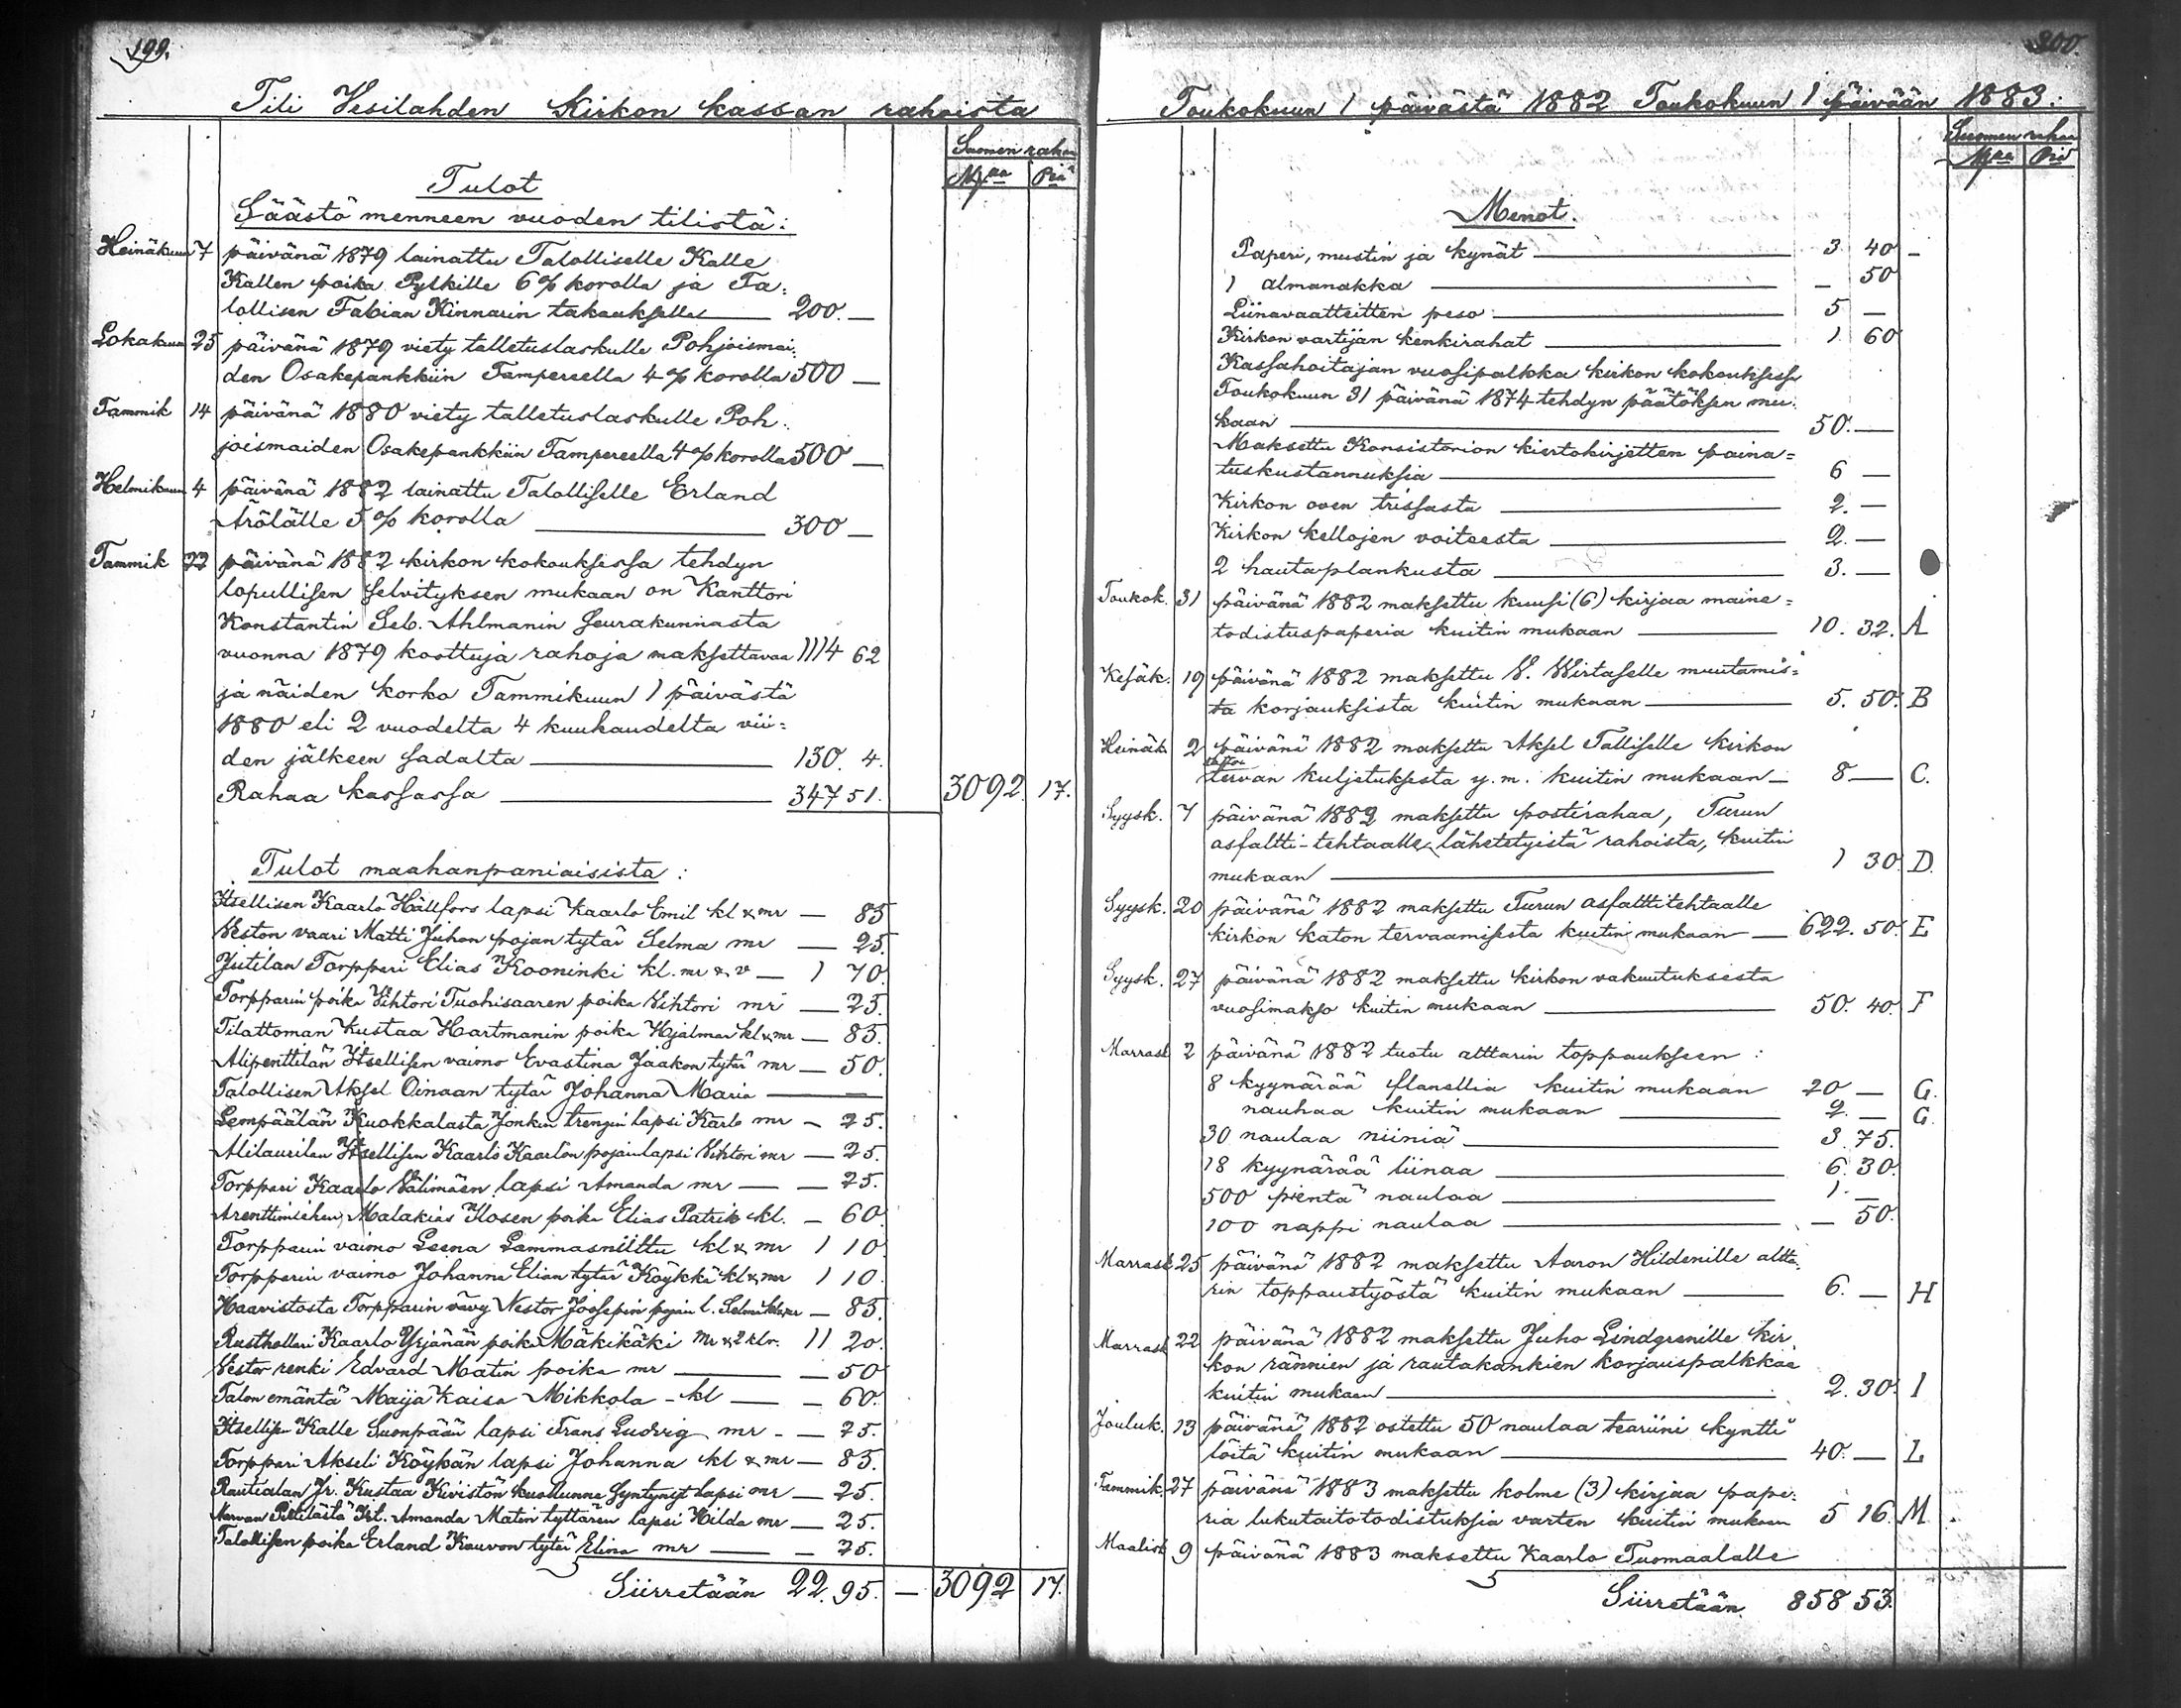 199.
Tili Vesilahden Kirkon kassan rahoista
Suomen rahaa
Mkaa Piä
Tulot
Säästö menneen vuoden tilistä:
Heinäkuun 7 päivänä 1879 lainattu Talolliselle Kalle
Kallen poika Pylkille 6 % korolla ja Ta-
lollisen Fabian Kinnarin takaukselles 200. —
Lokakuun 25 päivänä 1879 viety talletuslaskulle Pohjoismai-
den Osakepankkiin Tampereella 4 % korolla 500 —
Tammik 14 päivänä 1880 viety talletuslaskulle Poh-
joismaiden Osakepankkiin Tampereella 4 % korolla 500 —
Helmikuun 4 päivänä 1882 lainattu Talolliselle Erland
Ärölälle 5 % korolla 300 —
Tammik 22 päivänä 1882 kirkon kokouksessa tehdyn
lopullisen selvityksen mukaan on Kanttori
Konstantin Seb. Ahlmanin seurakunnasta
vuonna 1879 koottuja rahoja maksettavaa 1114 62
ja näiden korko Tammikuun 1 päivästä
1880 eli 2 vuodelta 4 kuukaudelta vii-
den jälkeen sadalta 130. 4.
Rahaa kassassa 347 51. 3092. 17.
Tulot maahanpaniaisista:
Itsellisen Kaarlo Hällfors lapsi Kaarlo Emil kl & mr — 85
Veston vaari Matti Juhon pojan tytär Selma mr — 25.
Ysitilan Torppari Elias Kooninki kl. mr & v — 1 70.
Torpparin poika Vihtori Tuohisaaren poika Vihtori mr — 25.
Tilattoman Kustaa Hartmanin poika Hjalmar kl & mr — 85.
Alipenttilän Itsellisen vaimo Evastina Jaakon tytär mr — 50.
Talollisen Aksel Oinaan tytär Johanna Maria —
Lempäälän Kuokkalasta Jonkin trengin lapsi Karlo mr — 25.
Alilaurilan Itsellisen Kaarlo Kaarlon pojan lapsi Vihtori mr — 25.
Torppari Kaarlo Välimäen lapsi Amanda mr — — 25.
Arenttimiehen Malakias Ilosen poika Elias Patrik kl. — 60.
Torpparin vaimo Leena Lammasniittu kl & mr 1 10.
Torpparin vaimo Johanna Elian tytär Köykkä kl & mr 1 10.
Haavistosta Torpparin vävy Nestor Joosepin pojan l. Selmi kl & mr — 85.
Rusthollari Kaarlo Yrjänän poika Mäkikäki mr & 2 klr. 11 20.
Vestor renki Edvard Matin poika mr — 50
Talon emäntä Maija Kaisa Mikkola - kl — 60.
Itsellisen Kalle Suonpään lapsi Frans Ludvig mr - — 25.
Torppari Akseli Köykän lapsi Johanna kl & mr — 85.
Rautialan Jr. Kustaa Kiviston kuolluna syntynyt lapsi mr — 25.
Narvan Pietilästä Itl. Amanda Matin tyttären lapsi Hilda mr — 25.
Talollisen poika Erland Kauvon tytär Elina mr — 25.
Siirretään 22. 95. — 3092 17.
200.
Toukokuun 1 päivästä 1882 Toukokuun 1 päivään 1883.
Suomen rahaa
Mkaa Piä
Menot.
Paperi, mustin ja kynät 3. 40 —
1 almanakka — 50
Liinavaatteitten peso 5 —
Kirkon vartijan kenkirahat 1 60
Kassahoitajan vuosipalkka kirkon kokouksessa
Toukokuun 31 päivänä 1874 tehdyn päätöksen mu-
kaan 50. —
Maksettu Konsistorion kiertokirjetten paina-
tuskustannuksia 6 —
Kirkon oven trissasta 2. —
Kirkon kellojen voiteesta 2. —
2 hautaplankusta 3. —
Toukok. 31 päivänä 1882 maksettu kuusi (6) kirjaa maine-
todistuspaperia kuitin mukaan 10. 32. A
Kesäk. 19 päivänä 1882 maksettu V. Wirtaselle muutamis-
ta korjauksista kuitin mukaan 5. 50. B
Heinäk. 2 päivänä 1882 maksettu Aksel Talliselle kirkon
tervan kuljetuksesta y. m. kuitin mukaan 8 — C.
Syysk. 7 päivänä 1882 maksettu postirahaa, Turun
asfaltti-tehtaalle lähetetyistä rahoista, kuitin
mukaan 1 30. D.
Syysk. 20 päivänä 1882 maksettu Turun asfalttitehtaalle
kirkon katon tervaamisesta kuitin mukaan 622. 50. E
Syysk. 27 päivänä 1882 maksettu kirkon vakuutuksesta
vuosimakso kuitin mukaan 50. 40. F
Marrask 2 päivänä 1882 tuotu alttarin toppaukseen:
8 kyynärää flanellia kuitin mukaan 20 — G.
nauhaa kuitin mukaan 2. — G.
30 naulaa niiniä 3. 75.
18 kyynärää liinaa 6. 30.
500 pientä naulaa 1. —
100 nappi naulaa — 50.
Marrask 25 päivänä 1882 maksettu Aaron Hildenille altta-
rin toppaustyöstä kuitin mukaan 6. — H
Marrask 22 päivänä 1882 maksettu Juho Lindgrenille kir
kon rännien ja rautakankien korjauspalkkaa
kuitin mukaan 2. 30. I
Jouluk. 13 päivänä 1882 ostettu 50 naulaa teariini kyntti
löitä kuitin mukaan 40. — L
Tammik. 27 päivänä 1883 maksettu kolme (3) kirjaa pape-
ria lukutaitotodistuksia varten kuitin mukaan 5 16. M
Maalisk 9 päivänä 1883 maksettu Kaarlo Tuomaalalle
Siirretään 858 53.